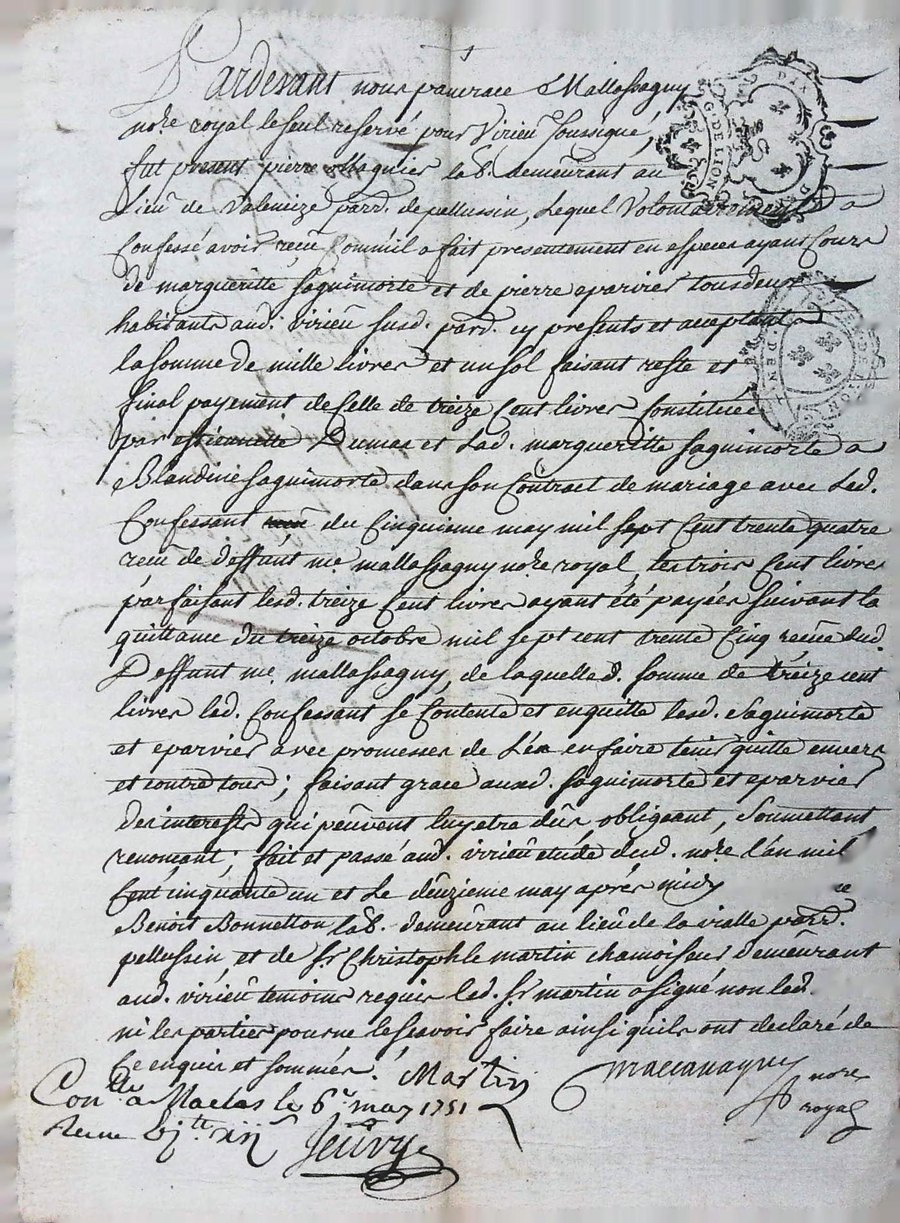 Pardevant nous pancrace Mallassagny
no.re royal le seul reservé pour Virieu soussigné,
fut present pierre Magnier lab. demeurant au
Lieu de Valenuze parr. de pellussin, Lequel Volontairement a
Confessé avoir recû Comm'il a fait presentement en especes ayant Cours
de margueritte saquimorte et de pierre eparvier tous deux
habitants aud. virieu susd. parr. cy presents et acceptants
la somme de mille livres et un sol faisant reste et
final payement de Celle de treize Cent livres Constituée
par estiennette Dumas et Lad. margueritte saquimorte a
Blandine saquimorte dans son Contract de mariage avec Led.
Confessant du Cinquieme may mil sept Cent trente quatre
recû de deffunt me. mallassagny no.re royal, les trois Cent livres
parfaisant lesd. treize Cent livres ayant été payées suivant la
quittance du treize octobre mil sept cent trente Cinq recûe dud.
Deffunt me. mallassagny, de laquelle d. somme de treize cent
livres led. Confessant se Contente et en quitte lesd. saquimorte
et eparvier avec promesses de Les en faire tenir quitte envers
et contre tous; faisant grace auxd. saquimorte et eparvier
des interests qui peûvent luy etre dûs obligeant, soumettant
renoncant; fait et passé aud. virieu etude dud. no.re l'an mil
Cent cinquante un et Le deuzieme may après midy
Benoit Bonnetton lab. demeurant au lieu de la vialle parr.
pellussin et de sr. Christophle martin chamoiseur demeûrant
aud. virieu temoins requis led. sr. martin a signé non led.
ni les parties pour ne le scavoir faire ainsi qu'ils ont declaré de
Ce enquis et sommés. Martin
nore
royal
Con.llé a Maclas le 6e may 1751
G. DE LION
DIX
DEN